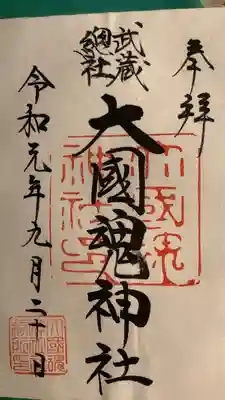 奉拝
武蔵
総社
大國魂神社
令和元年九月二十日